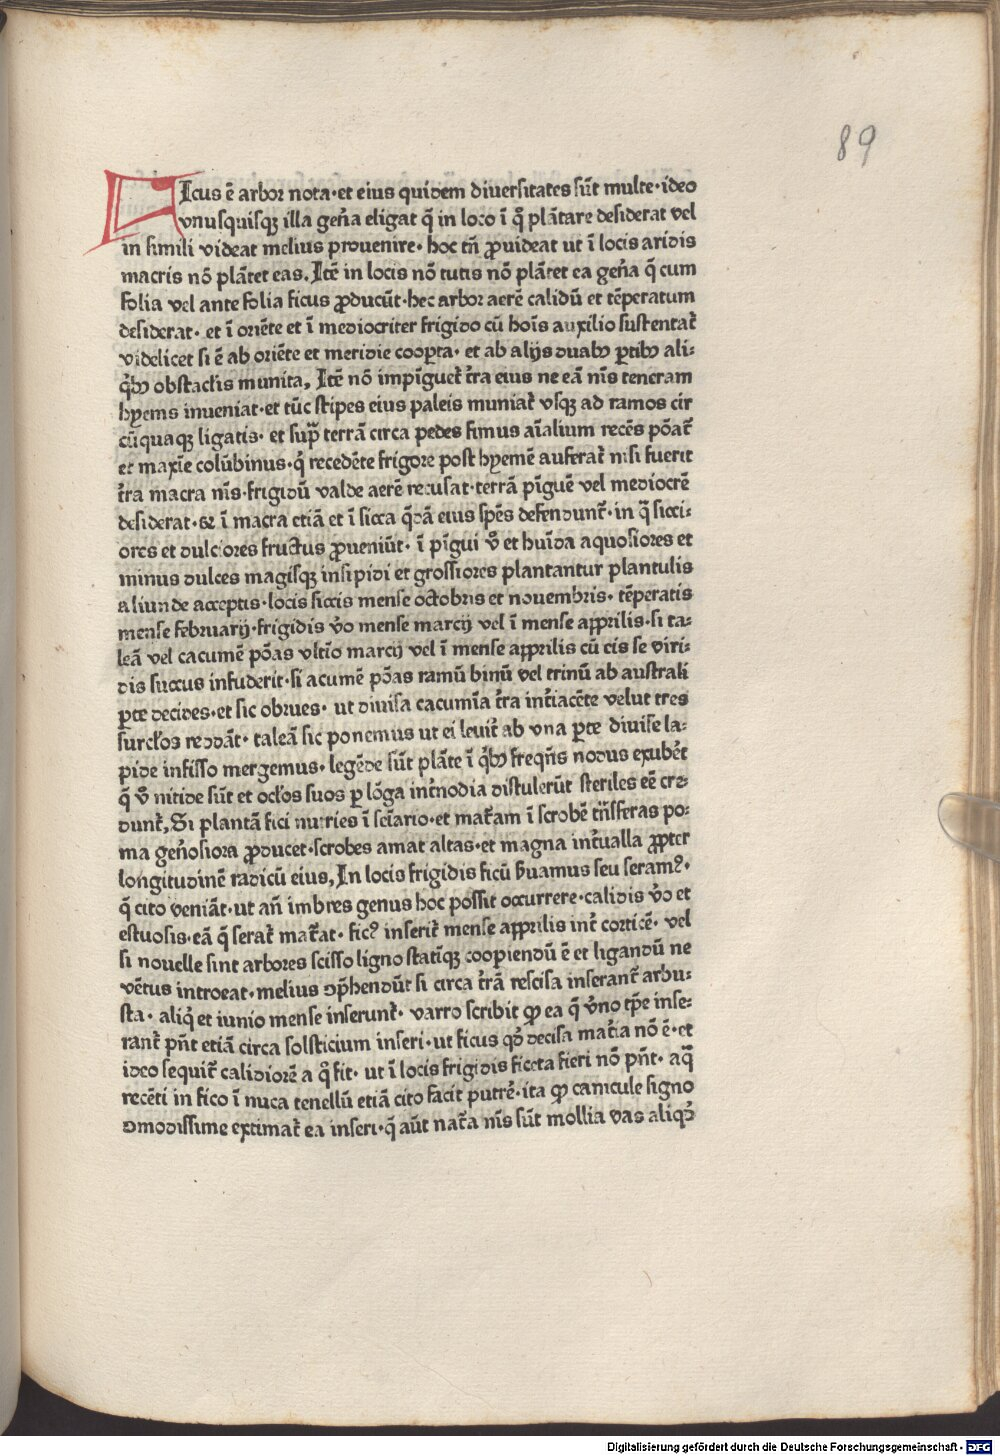 89
FIcus ē arbor nota·et eius quidem diuersitates sūt multe·ideo
vnusquisqꝫ illa geña eligat q̄ in loco ī q̄ plātare desiderat vel
in simili videat melius prouenire· hoc tn̄ ꝓuideat ut ī locis aridis
macris nō plātet eas. Itē in locis nō tutis nō plātet ea geña q̄ cum
folia vel ante folia ficus ꝓducūt·hec arbor aerē calidū et tēperatum
desiderat· et ī oriēte et ī mediocriter frigido cū hoīs auxilio sustentat᷑
videlicet si ē ab oriēte et meridie coopta· et ab alijs duabꝫ ꝑtibꝫ ali:
q̇bꝫ obstaclis munita, Itē nō impīguet᷑ t̄ra eius ne eā nīs teneram
hyems inueniat·et tūc stipes eius paleis muniat᷑ vsqꝫ ad ramos cir
cūquaqꝫ ligatis· et sup̄ terrā circa pedes fimus aīalium recēs pōat᷑
et maxīe colūbinus·q̇ recedēte frigore post hyemē auferat᷑ nisi fuerit
t̄ra macra nīs·frigidū valde aerē recusat·terrā pīguē vel mediocrē
desiderat·& ī macra etiā et ī sicca q̄dā eius spēs defendunt᷑·in q̄ sicci:
ores et dulciores fructus ꝓueniūt· ī pīgui v̄o et huīda aquosiores et
minus dulces magisqꝫ insipidi et grossiores plantantur plantulis
aliunde acceptis·locis siccis mense octobris et nouembris· tēperatis
mense februarij·frigidis v̄o mense marcij vel ī mense apprilis·si ta:
leā vel cacumē pōas vltīo marcij vel ī mense apprilis cū cis se viri:
dis succus infuderit·si acumē pōas ramū binū vel trinū ab australi
ꝑte decides·et sic obrues· ut diuisa cacumīa t̄ra int̄iacēte velut tres
surcl̄os reddāt· taleā sic ponemus ut ei leuit᷑ ab vna ꝑte diuise la:
pide infisso mergemus· legēde sūt plāte ī q̇bꝫ freqn̄s nodus exubet᷑
q̄ v̄o nitide sūt et ocl̄os suos ꝑ lōga int̄nodia distulerūt steriles eē cre:
dunt᷑, Si plantā fici nutries ī seīario·et mat̄am ī scrobē tn̄sferas po:
ma geñosiora ꝓducet·scrobes amat altas·et magna int̄ualla ꝓpter
longitudinē radicū eius, In locis frigidis ficū s̄uamus seu seramꝰ·
q̄ cito veniāt·ut an̄ imbres genus hoc possit occurrere·calidis v̄o et
estuosis·eā q̄ serat᷑ mat̄at· ficꝰ inserit᷑ mense apprilis int᷑ corticē· vel
si nouelle sint arbores scisso ligno statīqꝫ coopiendū ē et ligandū ne
vētus introeat·melius ꝯp̄hendūt si circa t̄rā rescisa inserant᷑ arbu:
sta· aliq̇ et iunio mense inserunt᷑· varro scribit ꝙ ea q̄ v̄no tp̄e inse:
rant᷑ pn̄t etiā circa solsticium inseri·ut ficus qd̄ decisa mat̄ia nō ē·et
ideo sequit᷑ calidiorē a q̄ fit· ut ī locis frigidis ficeta fieri nō pn̄t· aq̄
recēti in fico ī nuca tenellū etiā cito facit putrē·ita ꝙ canicule signo
ꝯmodissime extimat᷑ ea inseri·q̄ aūt nat̄a nīs sūt mollia vas aliqd̄
Digitalisierung gefördert durch die Deutsche Forschungsgemeinschaft - DFG